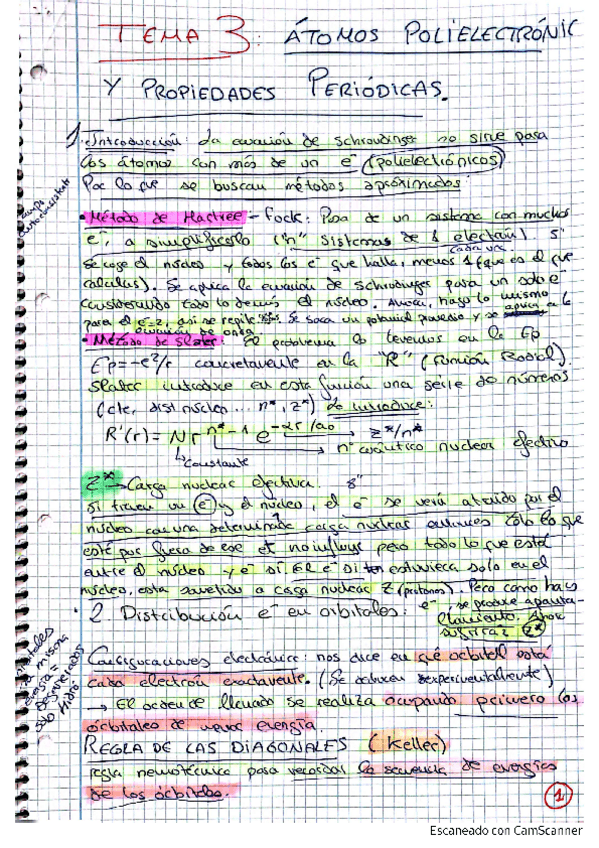 TEMA 3: ÁTOMOS POLIELECTRÓNIC
Y PROPIEDADES PERIÓDICAS.
1. Introducción: La ecuación de schroudinger no sirve para
los átomos con más de un e⁻ (polielectrónicos)
Por lo que se buscan métodos apróximados:
• Método de Hartree - Fock: Pasa de un sistema con muchos
e⁻, a simplificarlo ("n" sistemas de 1 electrón). 5"
cada uno
Se coge el núcleo y todos los e⁻ que halla, menos 1 (que es el que
calculas). Se aplica la ecuación de schroudinger para un solo e⁻
considerando todo lo demás el núcleo. Ahora, hago lo mismo
para el e⁻=2, así se repite Se saca un potencial promedio y se aplica a la
ecuación de onda
• Método de Slater: El problema lo tenemos en la Ep
Ep=-e²/r concretamente en la "R" (Función Radial).
Slater introduce en esta función una serie de números
(cte, dist núcleo ... n*, z*) Lo introduce:
R'(r) = N r^n*-1 e^-αr/ao → z*/n*
Constante n° cuántico nuclear efectivo
Z* → Carga nuclear efectiva. 8"
Si tienes un e⁻ y el núcleo, el e⁻ se verá atraído por el
núcleo con una determinada carga nuclear entonces todo lo que
esté por fuera de ese e⁻ no influye pero todo lo que está
entre el núcleo y e⁻ sí. El e⁻ si estuviera solo en el
núcleo, esta sometido a carga nuclear Z (protones). Pero como hay
2. Distribución e⁻ en orbitales: e⁻, se produce apanta-
llamiento, ahora
sufrirá z*
orbitales
misma
energía =
degenerados
solo hidró.
Configuraciones electrónica: nos dice en qué orbital está
cada electrón exactamente. (Se deducen experimentalmente)
→ El orden de llenado se realiza ocupando primero los
órbitales de menor energía.
REGLA DE LAS DIAGONALES (Keller)
regla nemotécnica para recordar la secuencia de energías
de los órbitales.
1
Escaneado con CamScanner